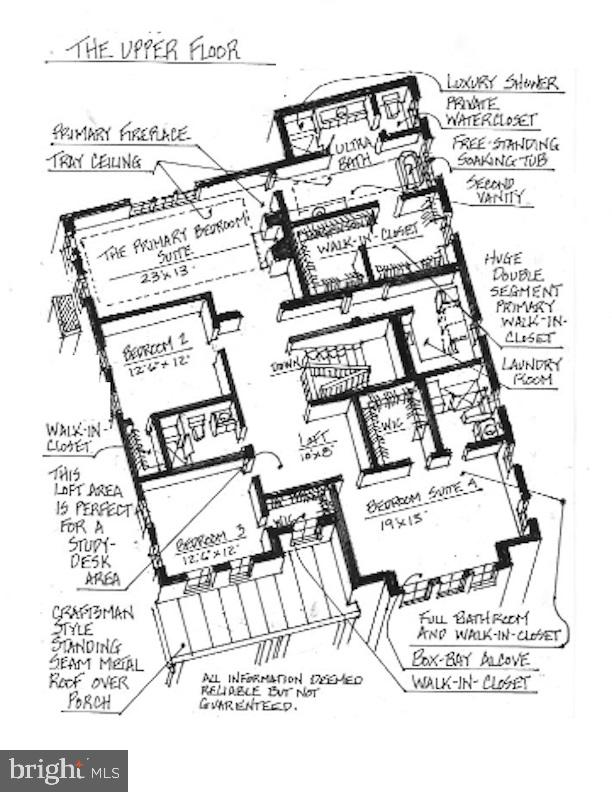 THE UPPER FLOOR
LUXURY SHOWER
PRIVATE
WATERCLOSET
FREE-STANDING
SOAKING TUB
SECOND
VANITY
PRIMARY FIREPLACE
TRAY CEILING
ULTRA
BATH
THE PRIMARY BEDROOM
SUITE
23'x13'
WALK-IN-CLOSET
HUGE
DOUBLE
SEGMENT
PRIMARY
WALK-IN-
CLOSET
LAUNDRY
ROOM
BEDROOM 2
12'6"x12'
DOWN
WALK-IN
CLOSET
LOFT
10'x8'
WIC
BEDROOM SUITE 4
19'x15'
THIS
LOFT AREA
IS PERFECT
FOR A
STUDY-
DESK
AREA
BEDROOM 3
12'6"x12'
WIC
CRAFTSMAN
STYLE
STANDING
SEAM METAL
ROOF OVER
PORCH
FULL BATHROOM
AND WALK-IN-CLOSET
BOX-BAY ALCOVE
WALK-IN-CLOSET
ALL INFORMATION DEEMED
RELIABLE BUT NOT
GUARENTEED.
bright MLS